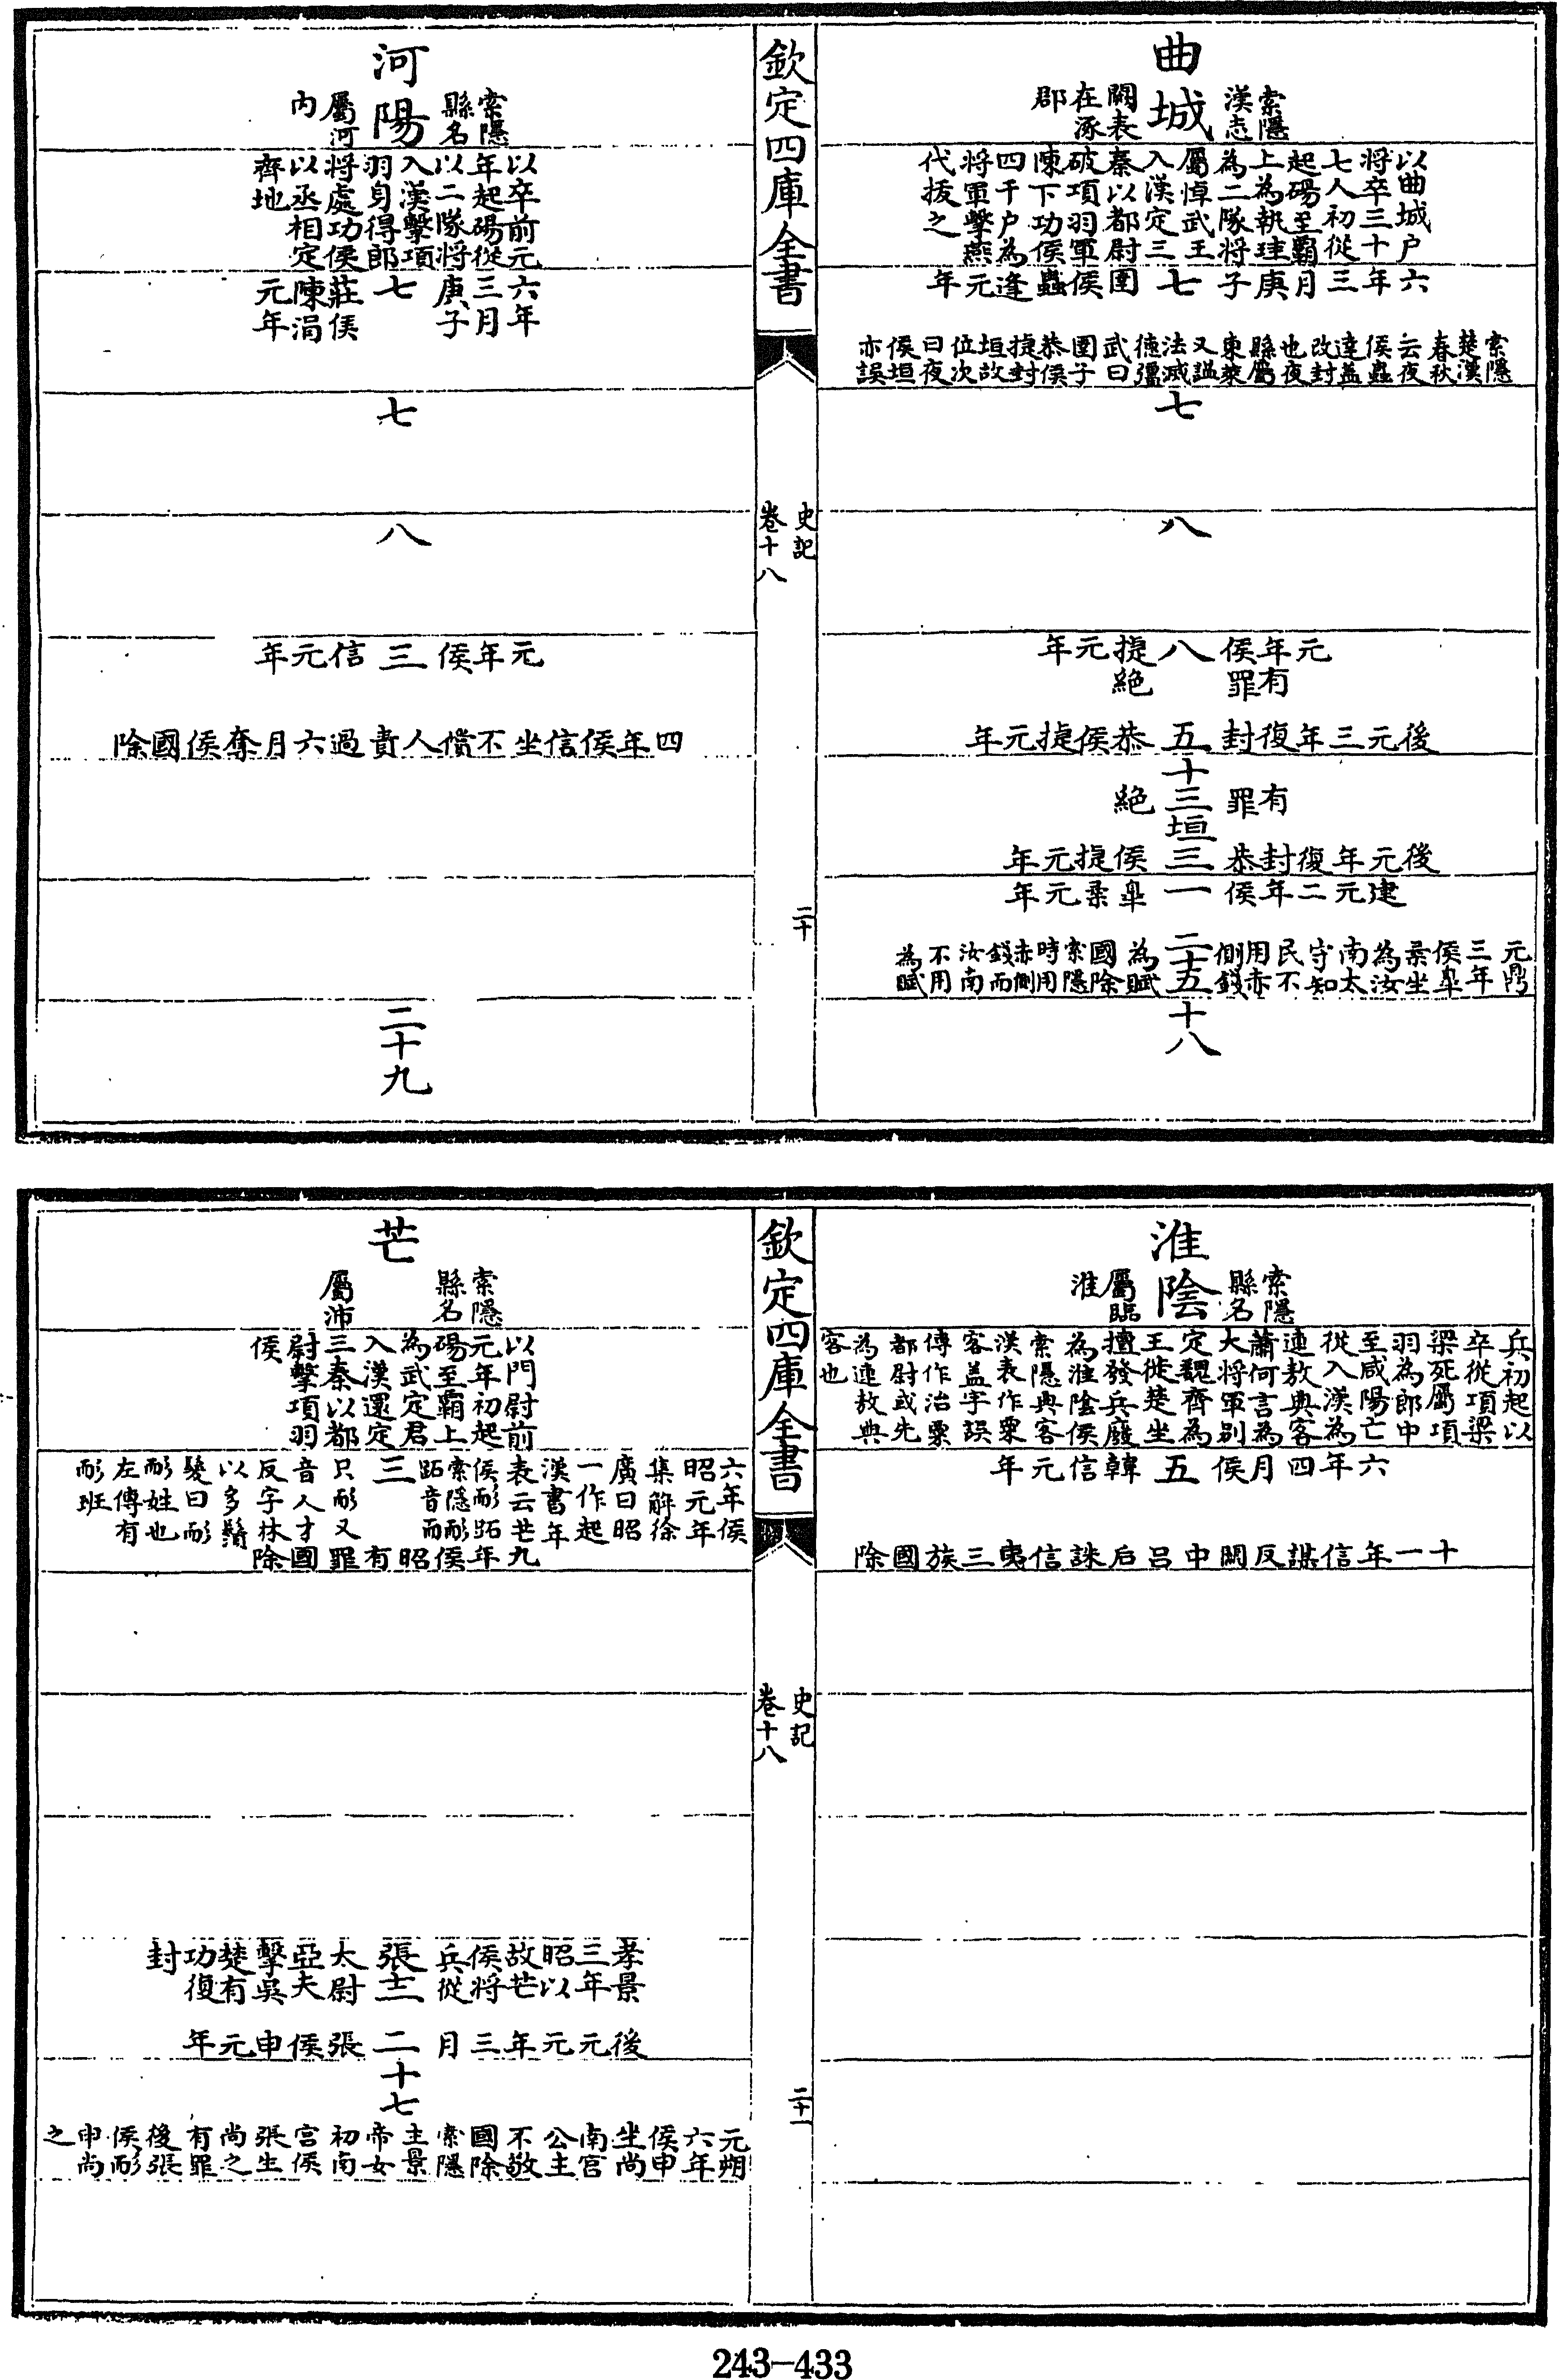 曲城 索隱漢志闕表在涿郡
以曲城户將卒三十七人初從起碭至霸上為執珪為二隊將屬悼武王入漢定三秦以都尉破項羽軍陳下功侯四千户為將軍擊燕代拔之
六年三月庚子 七 圉侯蠱逢元年
索隱楚漢春秋云夜侯蠱達蓋改封也夜縣屬東萊又謚法威德彊武曰圉子恭侯捷封垣故位次曰夜侯垣亦誤
七
八
元年侯 八 捷元年
有罪絶
後元三年復封 五 恭侯捷元年
十三
有罪絶
垣
後元年復封恭 三 侯捷元年
建元二年侯 一 臯柔元年
二十五
元鼎三年侯臯柔坐為汝南太守知民不用赤側錢為賦國除索隱時用赤側錢而汝南不用為賦
十八
欽定四庫全書
史記
卷十八
二十
河陽 索隱縣名屬河内
以卒前元年起碭從以二隊將入漢擊項羽身得郎將處功侯以丞相定齊地
六年三月庚子 七 莊侯陳涓元年
七
八
元年侯 三 信元年
四年侯信坐不償人責過六月奪侯國除
二十九
淮陰 索隱縣名屬臨淮
兵初起以卒從項梁梁死屬項羽為郎中至咸陽亡從入漢為連敖典客蕭何言為大將軍別定魏齊為王徙楚坐擅發兵廢為淮陰侯索隱典客漢表作粟客蓋字誤傳作治粟都尉或先為連敖典客也
六年四月侯 五 韓信元年
十一年信謀反關中吕后誅信夷三族國除
欽定四庫全書
史記
卷十八
二十一
芒 索隱縣名屬沛
以門尉前元年初起碭至霸上為武定君入漢還定三秦以都尉擊項羽侯
六年侯昭元年集解徐廣曰昭一作起漢書年表云芒侯耏跖索隱耏跖音而 三 只耏又音人才反字林以多鬚髮曰耏耏姓也左傳有耏班
九年侯昭有罪國除
孝景三年昭以故芒侯將兵從 張十一 太尉亞夫擊吳楚有功復封
後元元年三月 二 張侯申元年
十七
元朔六年侯申坐尚南宮公主不敬國除索隱主景帝女初南宮侯張生尚之有罪後張侯耏申尚之
243-433